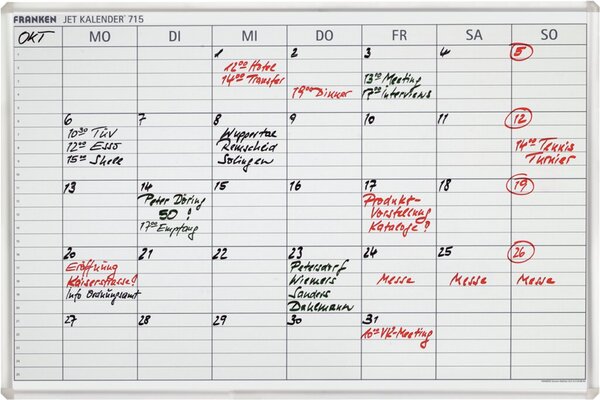 FRANKEN JET KALENDER® 715
OKT MO DI MI DO FR SA SO
1 2 3 4 5
1200 Hotel
1400 Transfer
1900 Dinner
1300 Meeting
1700 Interviews
6 7 8 9 10 11 12
10:30 Tüv
12:00 Esso
15:00 Shell
Wuppertal
Remscheid
Solingen
14:00 Tennis
Turnier
13 14 15 16 17 18 19
Peter Döring
50!
17:00 Empfang
Produkt-
Vorstellung
Kataloge?
20 21 22 23 24 25 26
Eröffnung
Kaiserstrasse!
Info Ordnungsamt
Petersdorf
Wiemers
Sanders
Dahlemann
Messe Messe Messe
27 28 29 30 31
10:00 VK-Meeting